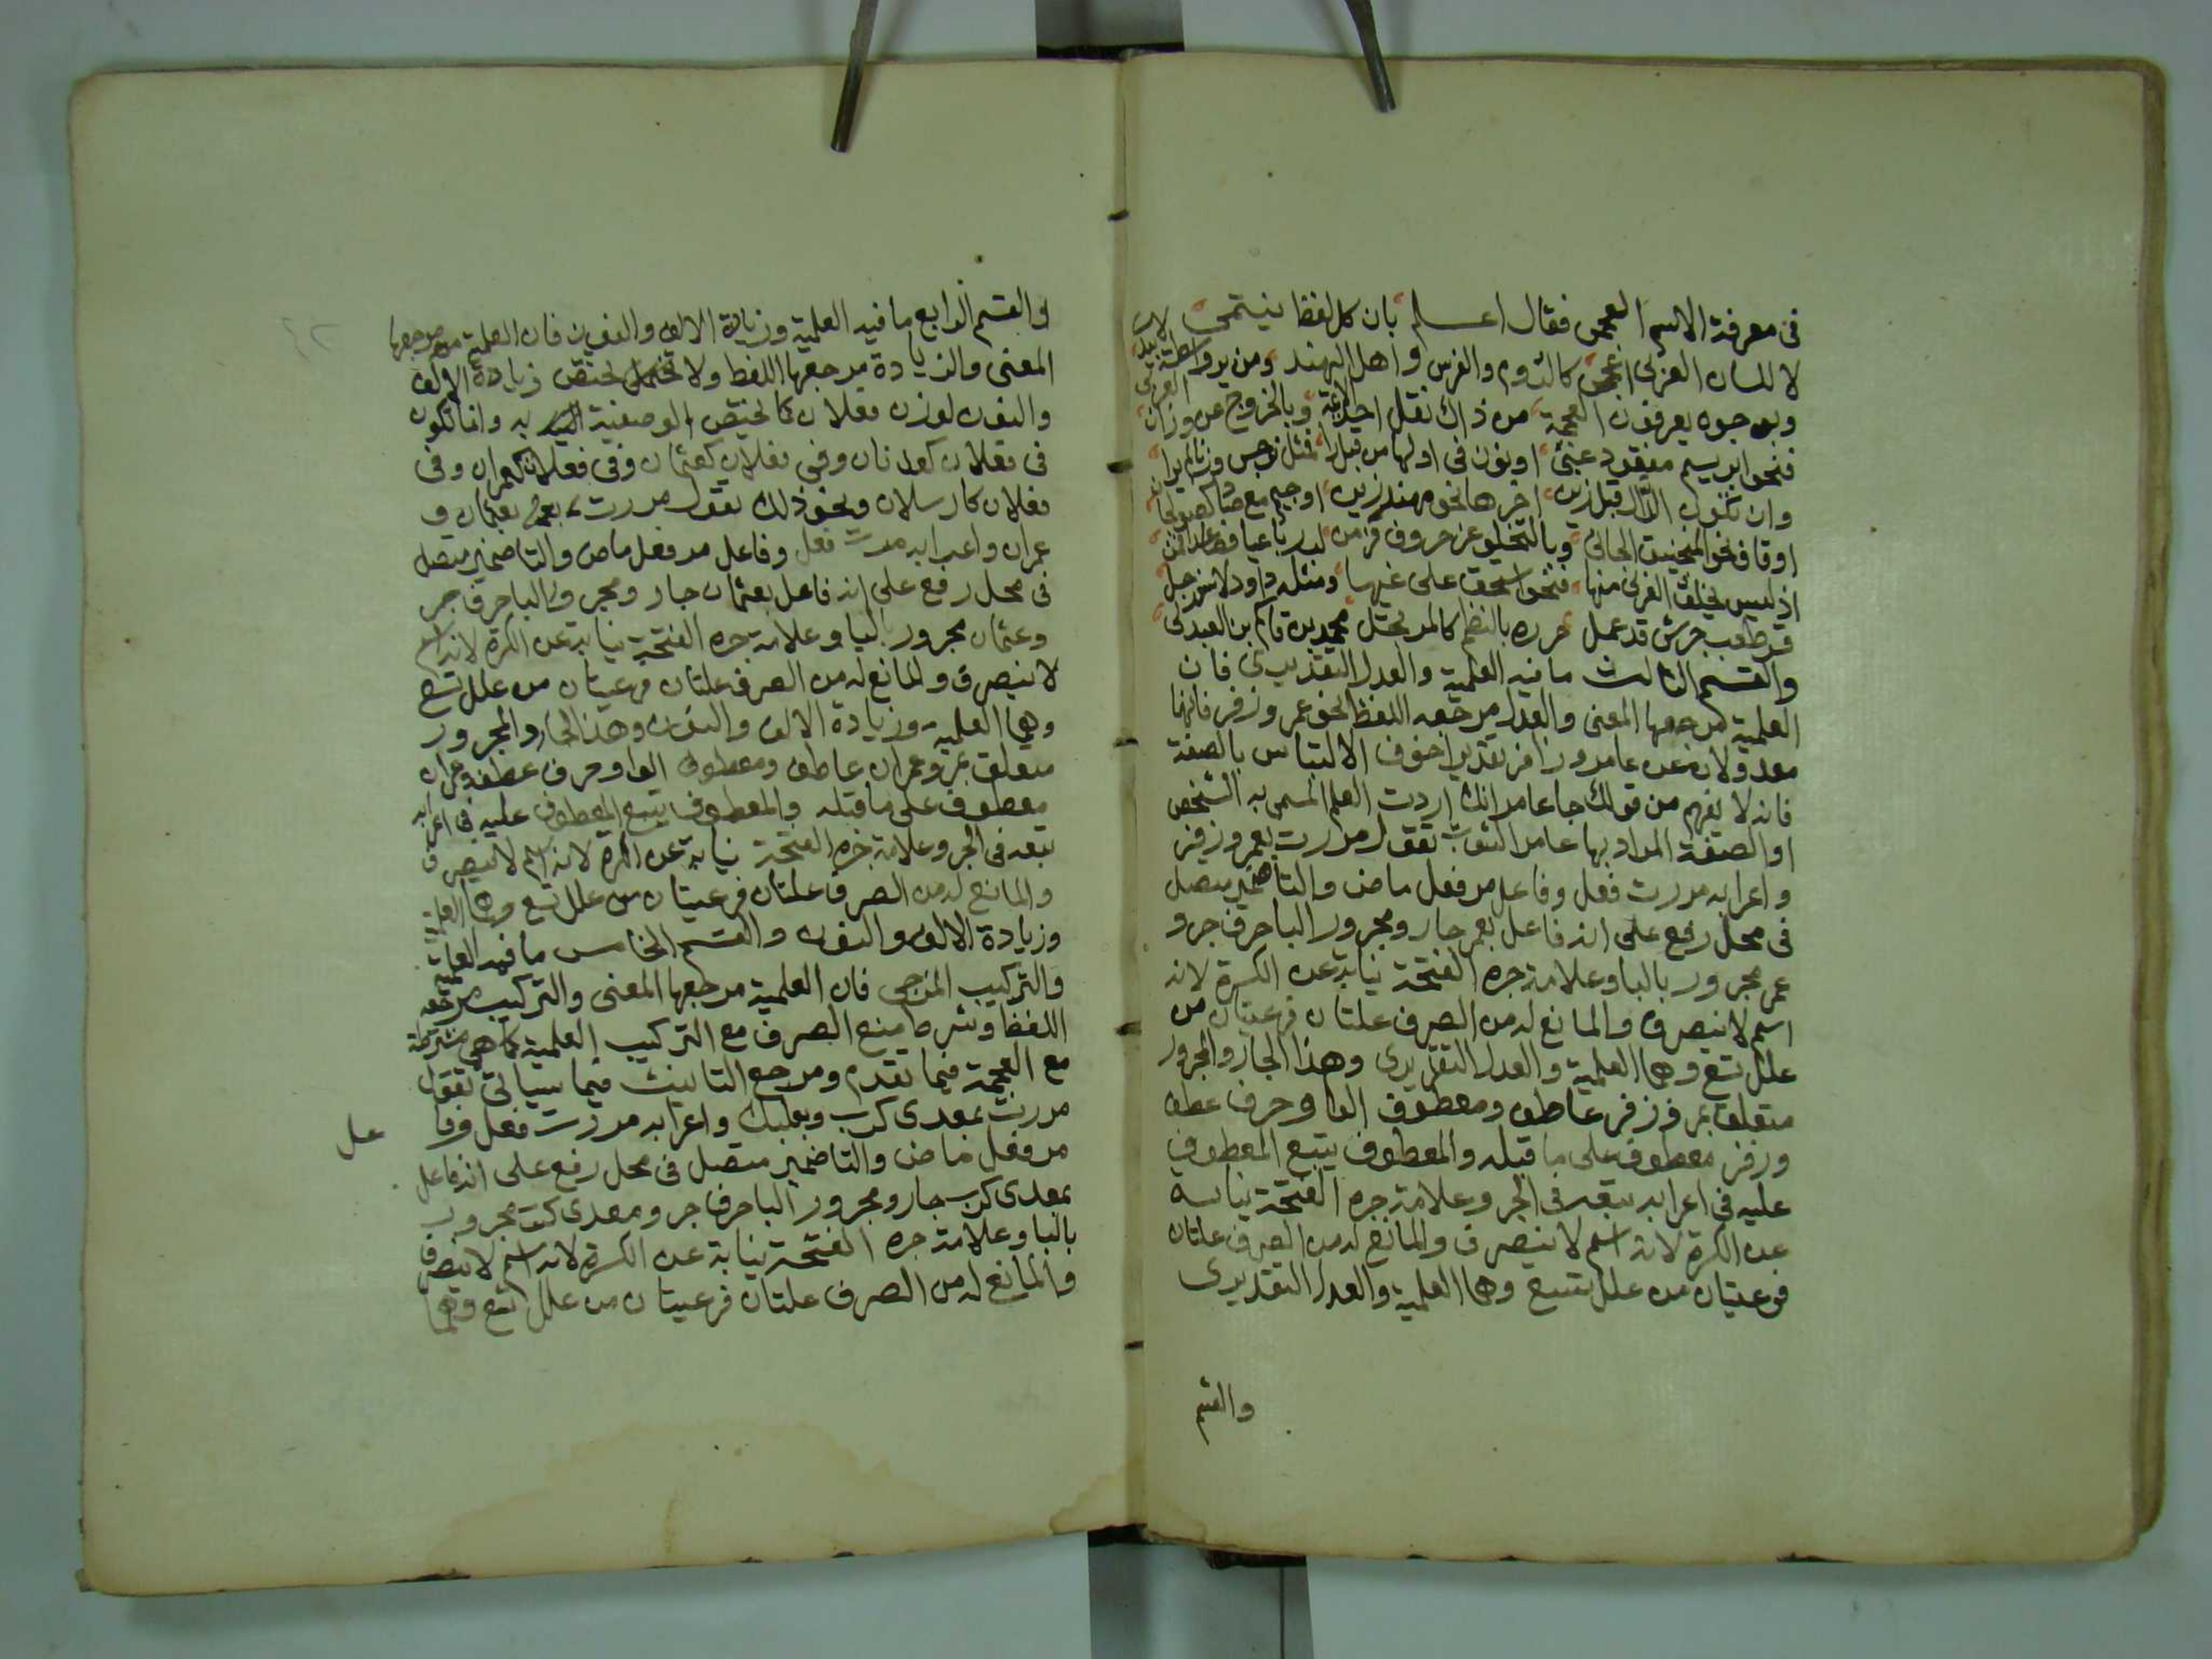 في معرفة الاسم العجمي فقال اعلم بان كل لفظ ينتمي
لا للسان العربي اعجمي كالروم والفرس واهل الهند ومن
وبوجوه يعرفون العجمة من ذاك نقل الايمة وبالخروج عن وزان العربي
فنحو ابريسم مفقود عني او نون في اولها من قبل را فمثل نرجس
وان تكون الدال قبل زين اخرها نحو مهندز او جيم مع صاد
او قاف نحو المنجنيق وبالتخلي عن حروف
اذ ليس يخلف العربي منها فنحو اسحق على غيرها ومثله داود
قد عمل حرره بالنظم محمد بن قاسم بن
والقسم الثالث ما فيه العلمية والعدل التقديري فان
العلمية مرجعها المعنى والعدل مرجعه اللفظ نحو عمر وزفر فانهما
معدولان عن عامر وزافر تقديرا خوف الالتباس بالصفة
فانه لا يفهم من قولك جا عامر انك اردت العلم المسمى به الشخص
او الصفة المراد بها عامر الثوب تقول مررت بعمر وزفر
واعرابه مررت فعل وفاعل مر فعل ماض والتا ضمير متصل
في محل رفع على انه فاعل بعمر جار ومجرور البا حرف جر و
عمر مجرور بالبا وعلامة جره الفتحة نيابة عن الكسرة لانه
اسم لا ينصرف والمانع له من الصرف علتان فرعيتان من
علل تسع وهما العلمية والعدل التقديري وهذا الجار والمجرور
متعلق بمر وزفر عاطف ومعطوف الواو حرف عطف
وزفر معطوف على ما قبله والمعطوف يتبع المعطوف
عليه في اعرابه تبعه في الجر وعلامة جره الفتحة نيابة
عن الكسرة لانه اسم لا ينصرف والمانع له من الصرف علتان
فرعيتان من علل تسع وهما العلمية والعدل التقديري
والقسم
والقسم الرابع ما فيه العلمية وزيادة الالف والنون فان العلمية مرجعها
المعنى والزيادة مرجعها اللفظ ولا تختص زيادة الالف
والنون بوزن فعلان كما تختص الوصفية به وانما تكون
في فعلان كعدنان وفي فعلان كعثمان وفي فعلان كعمران وفي
فعلان كارسلان ونحو ذلك تقول مررت بعثمان و
عمران واعرابه مررت فعل وفاعل مر فعل ماض والتا ضمير متصل
في محل رفع على انه فاعل بعثمان جار ومجرور البا حرف جر
وعثمان مجرور بالبا وعلامة جره الفتحة نيابة عن الكسرة لانه اسم
لا ينصرف والمانع له من الصرف علتان فرعيتان من علل تسع
وهما العلمية وزيادة الالف والنون وهذا الجار والمجرور
متعلق بمر وعمران عاطف ومعطوف الواو حرف عطف وعمران
معطوف على ما قبله والمعطوف يتبع المعطوف عليه في اعرابه
تبعه في الجر وعلامة جره الفتحة نيابة عن الكسرة لانه اسم لا ينصرف
والمانع له من الصرف علتان فرعيتان من علل تسع وهما العلمية
وزيادة الالف والنون والقسم الخامس ما فيه العلمية
والتركيب المزجي فان العلمية مرجعها المعنى والتركيب مرجعه
اللفظ وشرط منع الصرف مع التركيب العلمية كما هي مشترطة
مع العجمة فيما تقدم ومرجع التانيث فيما سياتي تقول
مررت بمعدي كرب وبعلبك واعرابه مررت فعل وفا
عل
مر فعل ماض والتا ضمير متصل في محل رفع على انه فاعل
بمعدي كرب جار ومجرور البا حرف جر ومعدي كرب مجرور
بالبا وعلامة جره الفتحة نيابة عن الكسرة لانه اسم لا ينصرف
والمانع له من الصرف علتان فرعيتان من علل تسع وهما